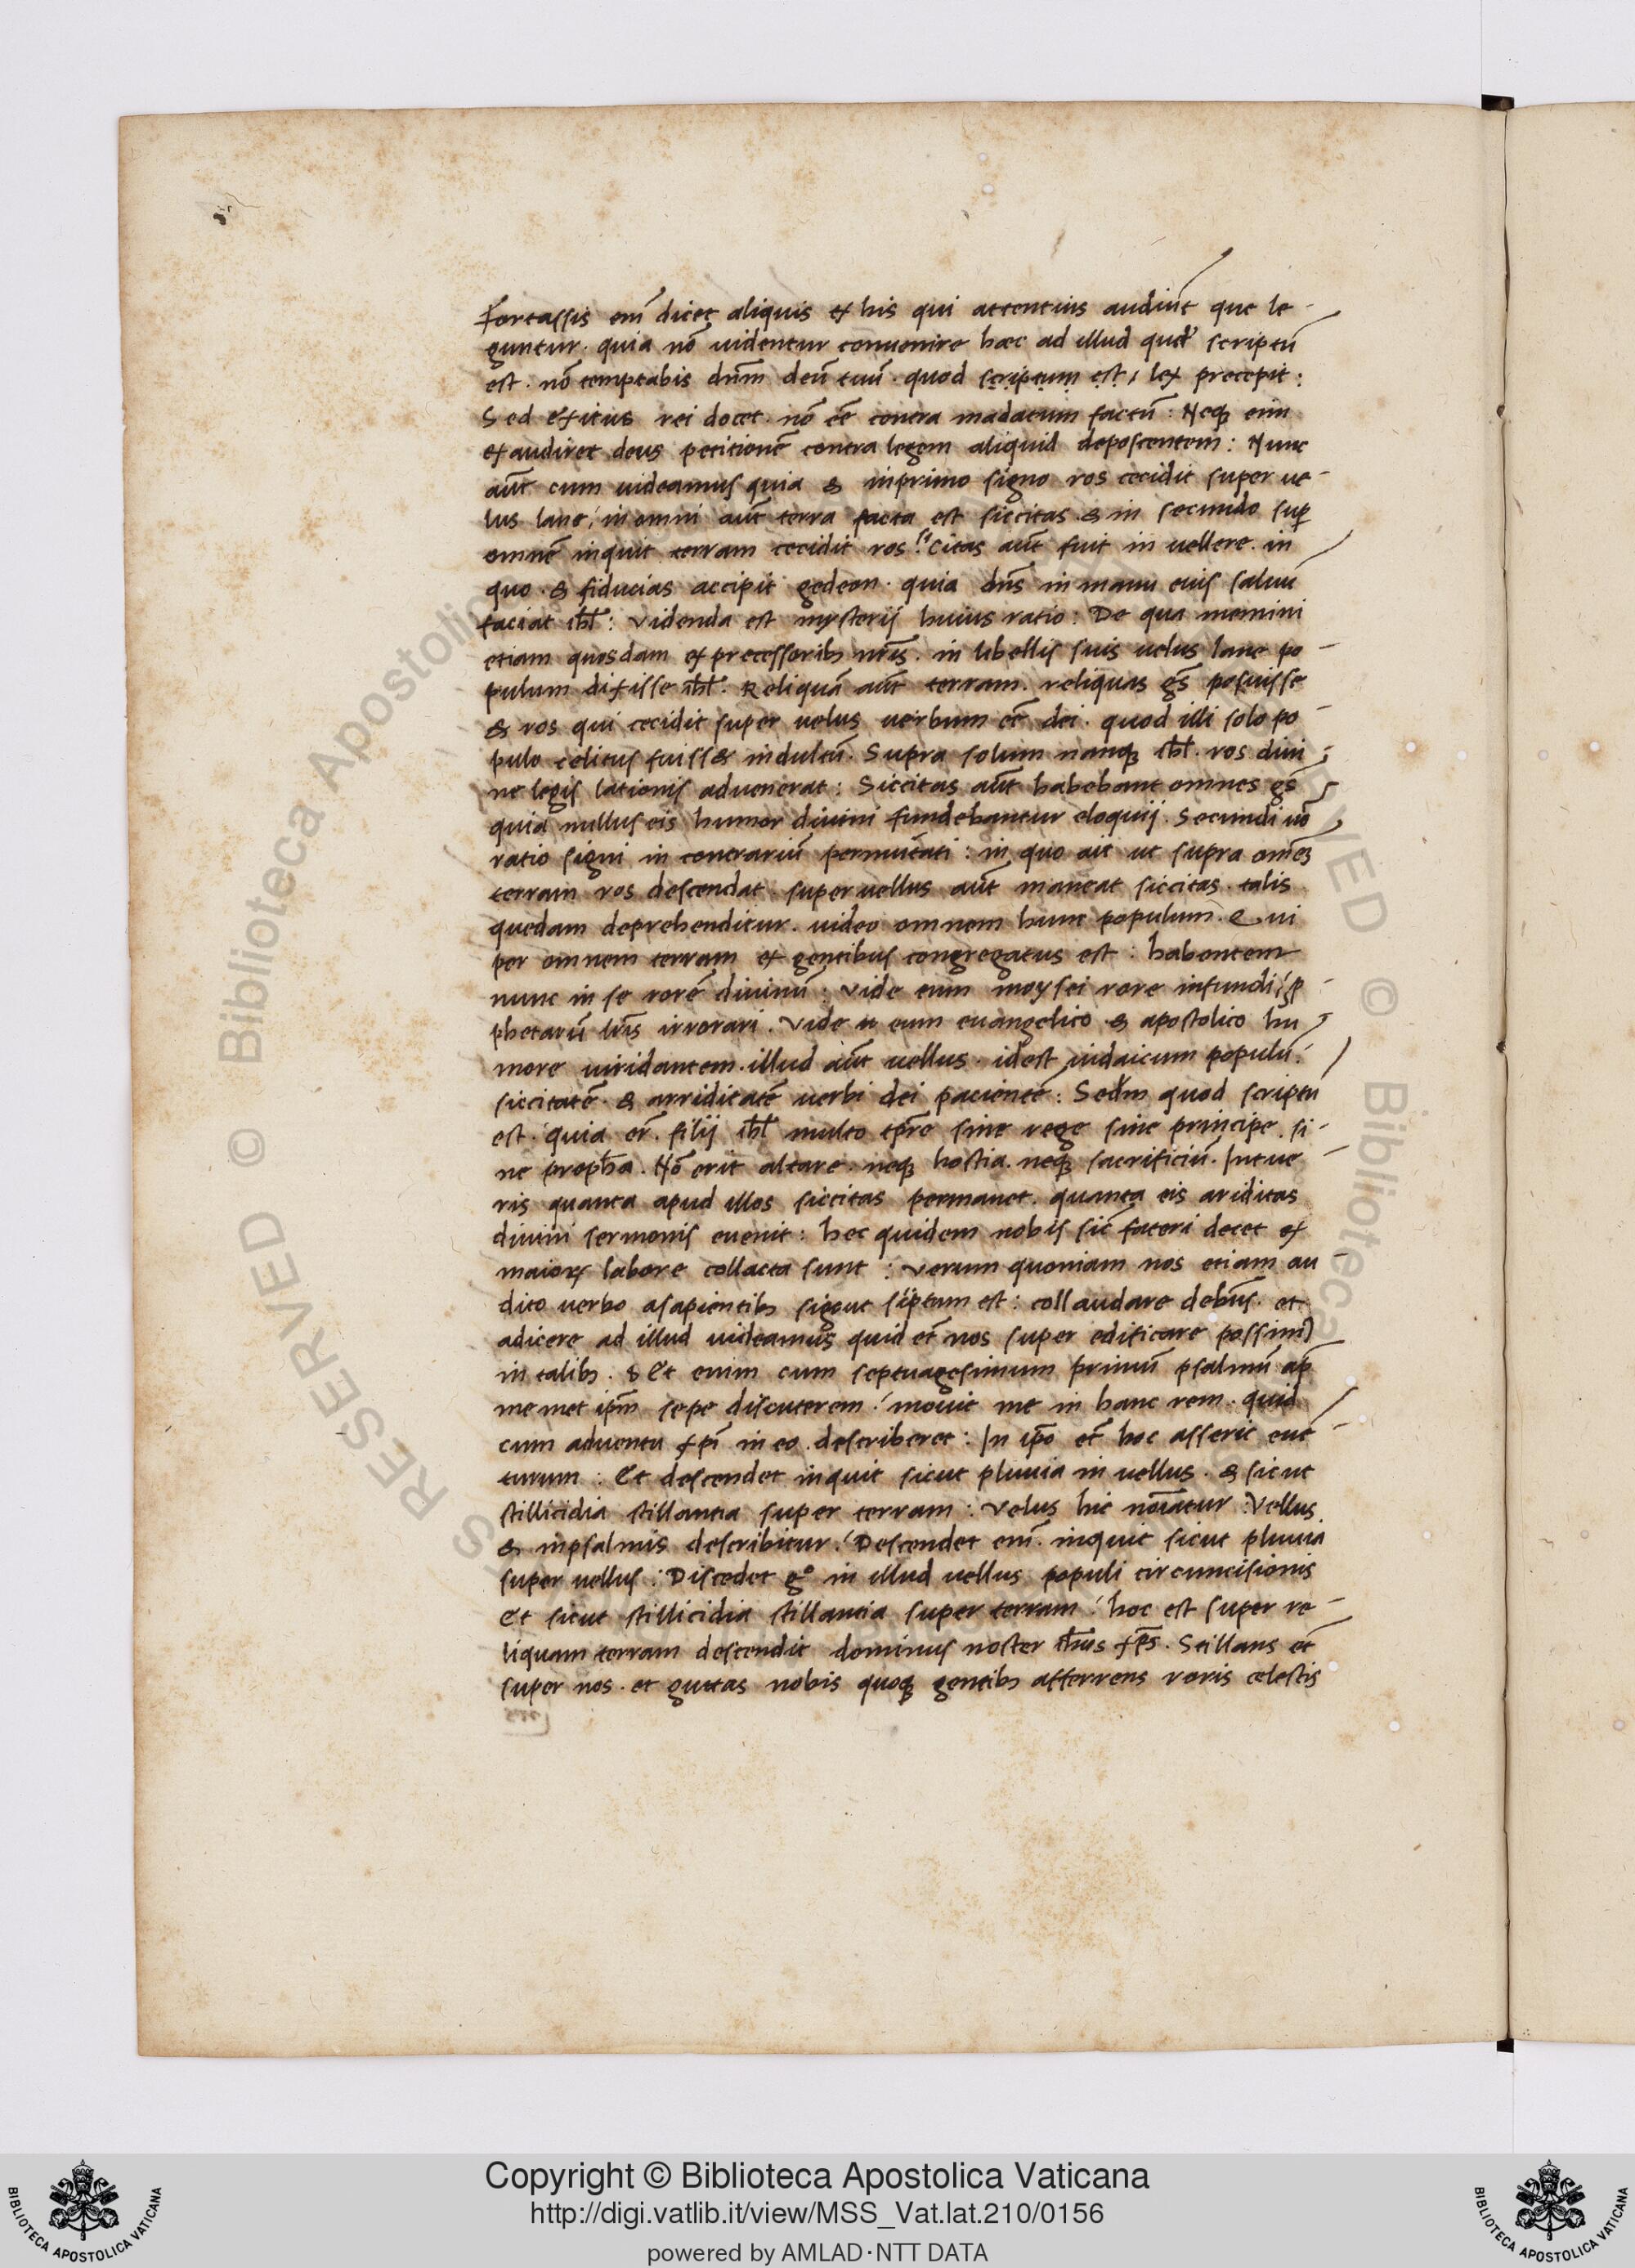 Fortassis em̄ dicet aliquis ex his qui attentius audiūt que le-
guntur. quia nō uidentur conuenire haec ad illud quod scriptū
est. nō temptabis dn̄m deū tuū. quod scriptum est, lex precepit:
Sed exitus rei docet. nō eē contra madatum factū: Neq; enim
exaudiret deus petitionē contra legem aliquid deposcentem: Nunc
aūt cum uideamus quia & inprimo signo ros cecidit super ue-
lus lane, in omni aūt terra facta est siccitas. & in secundo sup̄
omnē inquit terram cecidit ros. siccitas aūt fuit in uellere. in
quo & fiducias accipit gedeon. quia dn̄s in manu eius saluū
faciat isrl̄: Videnda est mysterij huius ratio: De qua memini
etiam quosdam ex precessorib; nr̄is. in libellis suis uelus lane po-
pulum dixisse isrl̄. Reliquā aūt terram. reliquas gēs posuisse
& ros qui cecidit super uelus uerbum eē dei. quod illi solo po-
pulo celitus fuiss& indultū. Supra solum nanq; isrl̄. ros diui
ne legis lationis aduenerat: Siccitas aūt habebant omnes gēs
quia nullus eis humor diuini fundebantur eloquij. Secundi uō
ratio signi in contrarium permutati: in quo ait ut supra om̄ēs
terram ros descendat super uellus aūt maneat siccitas. talis
quedam deprehenditur. uideo omnem hunc populum. Qui
per omnem terram ex gentibus congregatus est: habentem
nunc in se rorē diuinū: Vide eum moysei rore infundi, p̄-
phetarū lr̄is irrorari. Vide eum euangelico & apostolico hu
more uiridantem. illud aūt uellus. idest iudaicum populū.
siccitatē. & arriditatē uerbi dei pacientē: Sedm quod scriptū
est. quia er̄. filij isrl̄ multo tp̄re sine rege sine principe. si-
ne proph̄a. Nō erit altare. neq; hostia. neq; sacrificiū. Intue-
ris quanta apud illos siccitas permanet. quanta eis ariditas
diuini sermonis euenit: hec quidem nobis sic̄ fateri decet ex
maioꝝ labore collacta sunt: Verum quoniam nos etiam au-
dito uerbo asapientib; sicut sc̄iptum est: collaudare debem̄s. et
adicere ad illud uideamus quid et̄ nos super edificare possim9
in talib;. & Et enim cum septuagesimum primū psalmū ap̄
memet ip̄m sepe discuterem: mouit me in hanc rem. quid
cum aduentu xp̄i in eo describeret: In ip̄o et̄ hoc asserit euē-
turum: Et descendet inquit sicut pluuia in uellus. & sicut
stillicidia stillantia super terram: Velus hic nōiatur: Vellus
& inpsalmis describitur: Descendet em̄ inquit sicut pluuia
super uellus: Discedet gº in illud uellus populi circumcisionis
Et sicut stillicidia stillantia super terram: hoc est super re-
liquam terram descendit dominus noster ih̄us xp̄s. Stillans et̄
super nos. et guttas nobis quoq; gentib; afferrens roris celestis
Copyright © Biblioteca Apostolica Vaticana
http://digi.vatlib.it/view/MSS_Vat.lat.210/0156
powered by AMLAD·NTT DATA
BIBLIOTECA APOSTOLICA VATICANA
BIBLIOTECA APOSTOLICA VATICANA